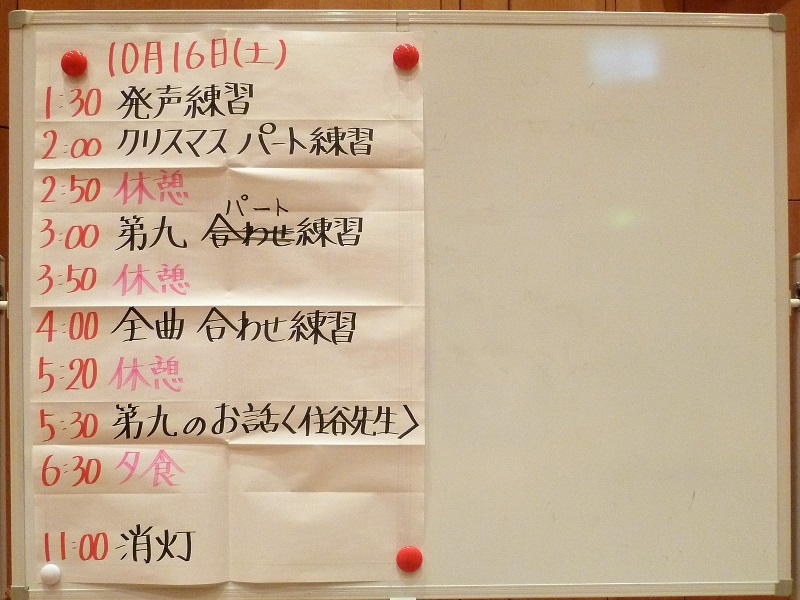 10月16日(土)
1:30 発声練習
2:00 クリスマス パート練習
2:50 休憩
パート
3:00 第九 合わせ練習
3:50 休憩
4:00 全曲 合わせ練習
5:20 休憩
5:30 第九のお話〈住谷先生〉
6:30 夕食
11:00 消灯